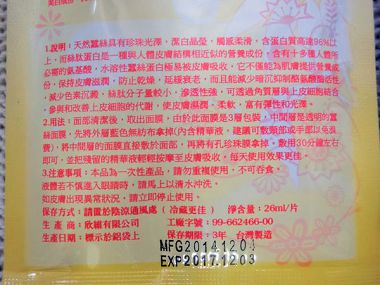 1.說明：天然蠶絲具有珍珠光澤，潔白晶瑩，觸感柔滑，含蛋白質高達96%以
上，而絲肽蛋白是一種與人體皮膚結構相近似的營養成份，含有十多種人體所
必需的氨基酸，水溶性蠶絲蛋白極易被皮膚吸收，它不僅能為肌膚提供營養成
份，保持皮膚滋潤，防止乾燥，延緩衰老，而且能減少暗沉抑制酪氨酸酶活性
，減少色素沉澱，絲肽分子量較小，滲透性強，可透過角質層與上皮細胞結合
參與和改善上皮細胞的代謝，使皮膚濕潤，柔軟，富有彈性和光澤。
2.用法：面部清潔後，取出面膜，由於此面膜是3層包裝膜，中間層是透明的蠶
絲面膜，先將外層藍色無紡布拿掉(內含精華液，建議可敷頸部或手部以免浪
費)，將中間層的面膜直接敷於面部，再將有孔珍珠膜拿掉，敷用30分鐘左右
即可，並把殘留的精華液輕輕按摩至皮膚吸收，每天使用效果更佳。
3.注意事項：本品為一次性產品，請勿重複使用，不可吞食。
液體若不慎進入眼睛時，請馬上以清水沖洗。
如皮膚出現異常狀況，請立即停止使用。
保存方式：請置於陰涼通風處（冷藏更佳） 淨含量：26ml/片
生 產 商：欣 有限公司 工廠字號：99-662466-00
生產日期：標示於鋁袋上 保存期限：3年 台灣製造
MFG20141204
EXP2017.1203